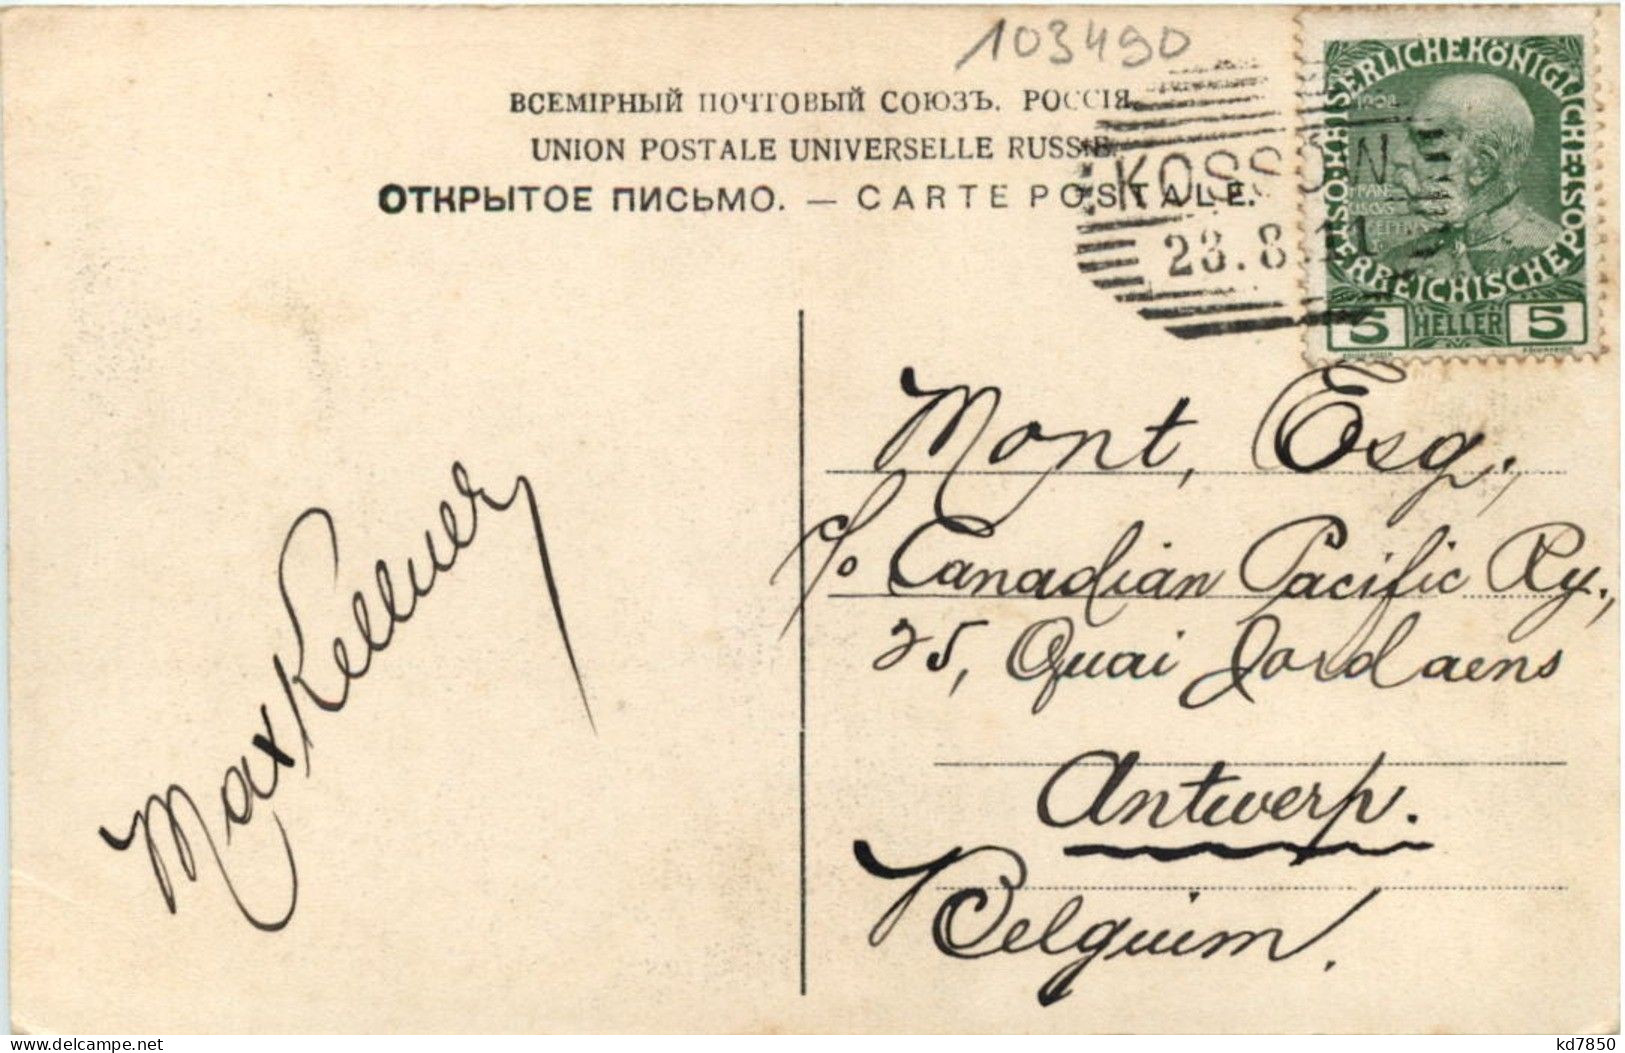 103490
ВСЕМІРНЫЙ ПОЧТОВЫЙ СОЮЗЪ. РОССІЯ
UNION POSTALE UNIVERSELLE RUSSIE.
ОТКРЫТОЕ ПИСЬМО. — CARTE POSTALE.
KOSSÓW
23.8.11
KAISERLICHEKÖNIGLICHEÖSTERREICHISCHEPOST
1908
5 HELLER 5
Mont, Esq.,
c/o Canadian Pacific Ry.,
25, Quai Jordaens
Antwerp.
Belguim.
Max Kellner
kd7850